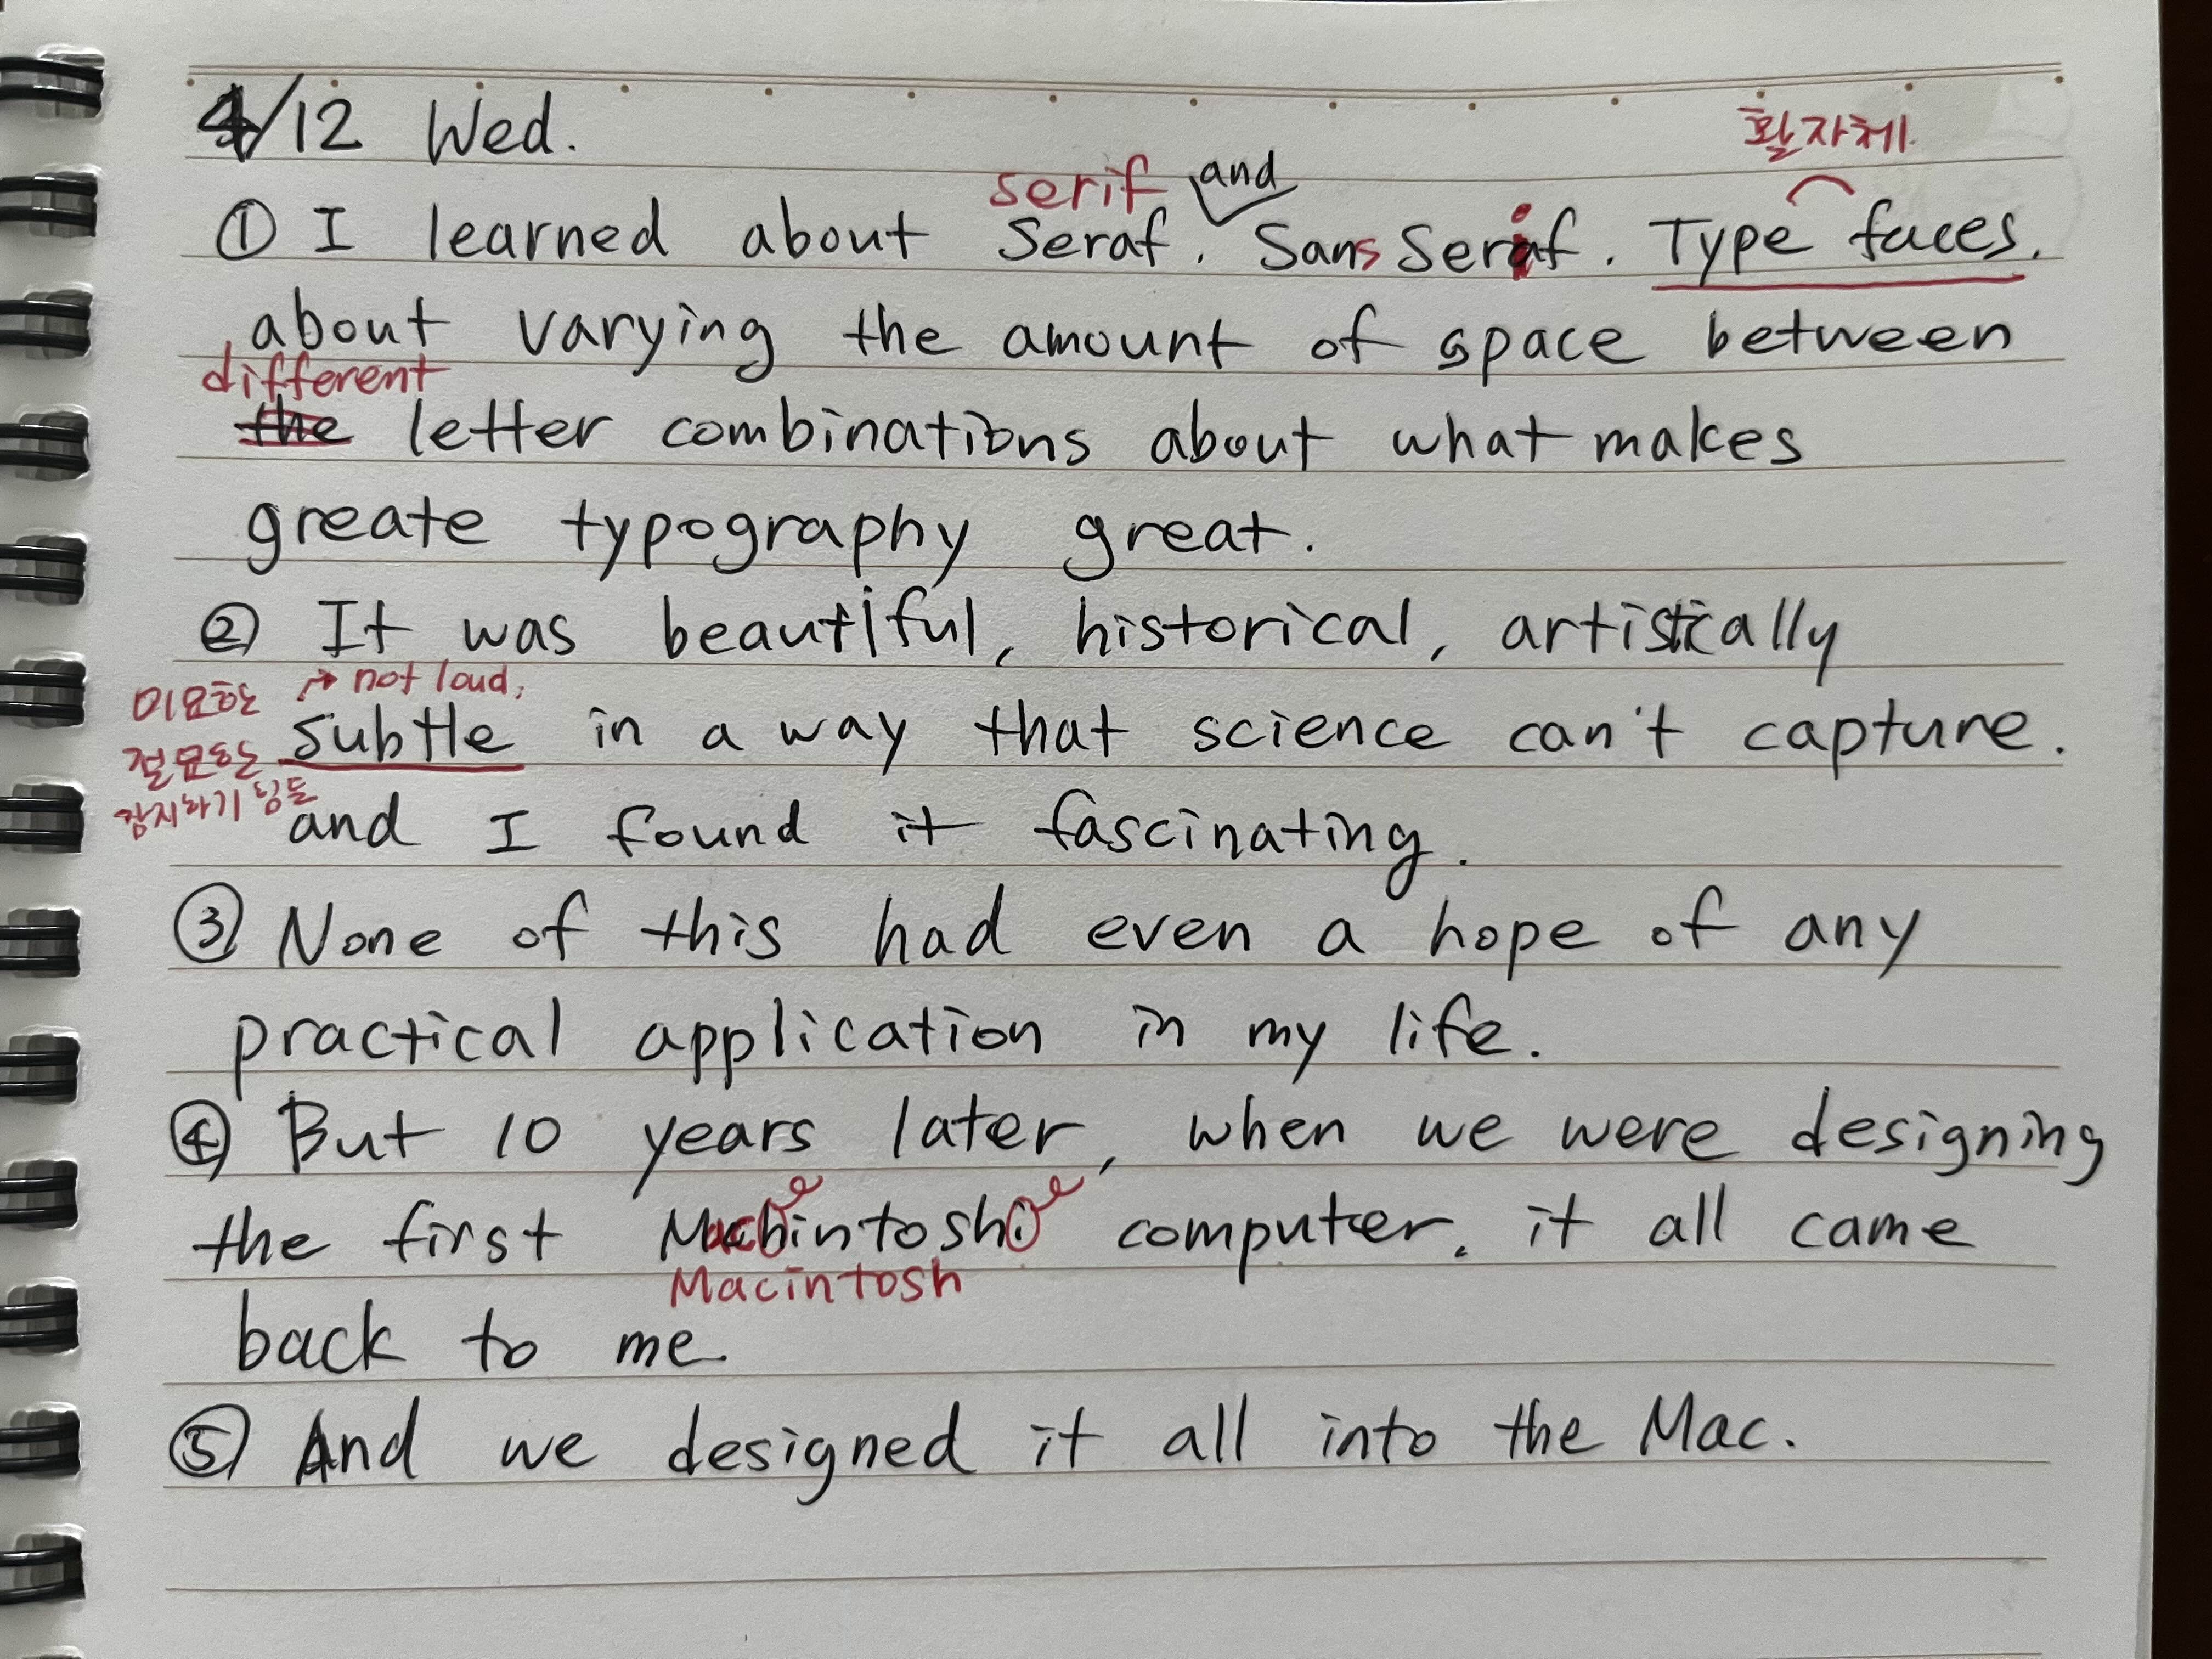 4/12 Wed.
활자체.
serif and
① I learned about Seraf. Sans Serif. Type faces.
about varying the amount of space between
different
the letter combinations about what makes
greate typography great.
② It was beautiful, historical, artistically
미묘한 → not loud,
절묘한 subtle in a way that science can't capture.
감지하기 힘든
and I found it fascinating.
③ None of this had even a hope of any
practical application in my life.
④ But 10 years later, when we were designing
the first Machintoshi computer. it all came
Macintosh
back to me.
⑤ And we designed it all into the Mac.